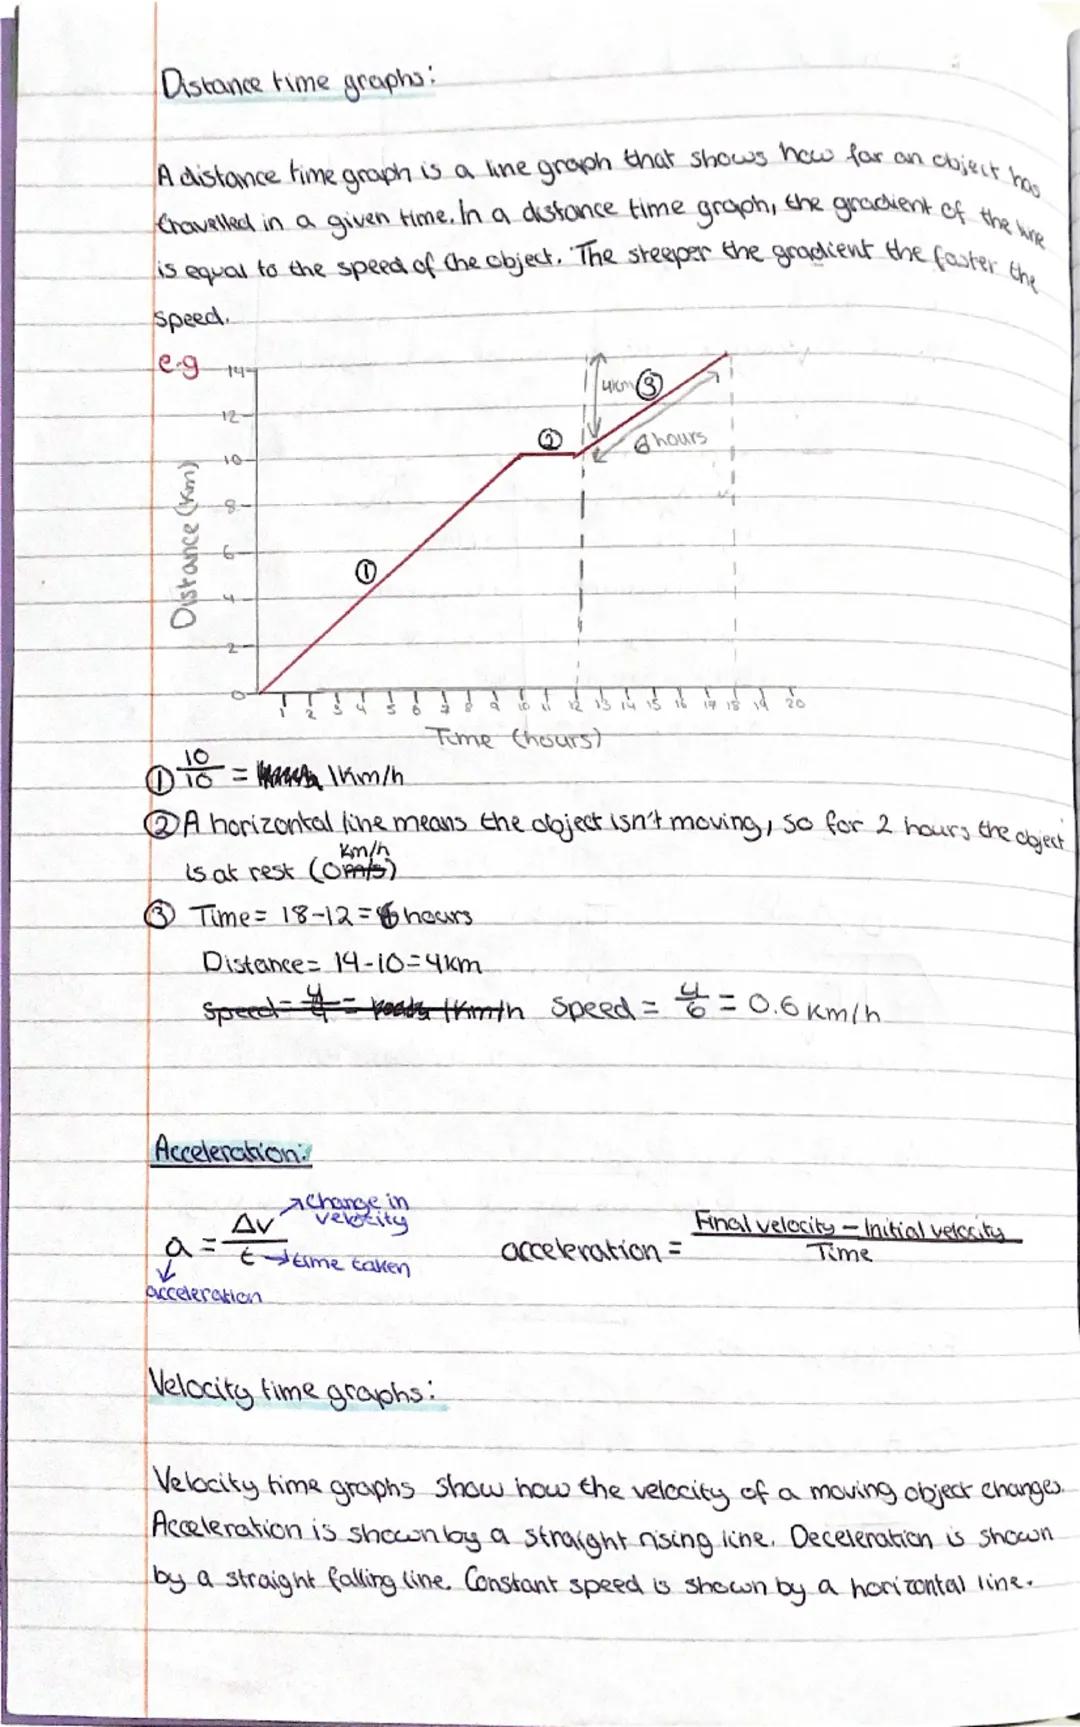 Distance time graphs:
A distance time graph is a line graph that shows how far an object has
travelled in a given time. In a distance time graph, the gradient of the line
is equal to the speed of the object. The steeper the gradient the faster the
speed.
e.g
14
12
10
8
6
4
2
0
Distance (km)
①
②
4km ③
6 hours
1 2 3 4 5 6 7 8 9 10 11 12 13 14 15 16 17 18 19 20
Time (hours)
① 10/10 = 1km/h
② A horizontal line means the object isn't moving, so for 2 hours the object
km/h
is at rest (0m/s)
③ Time = 18-12 = 6 hours
Distance = 14-10 = 4km
Speed = 4/4 = 1km/h Speed = 4/6 = 0.6 km/h
Acceleration:
a = Δv/t
change in
velocity
time taken
acceleration
acceleration = Final velocity - Initial velocity
Time
Velocity time graphs:
Velocity time graphs show how the velocity of a moving object changes.
Acceleration is shown by a straight rising line. Deceleration is shown
by a straight falling line. Constant speed is shown by a horizontal line.